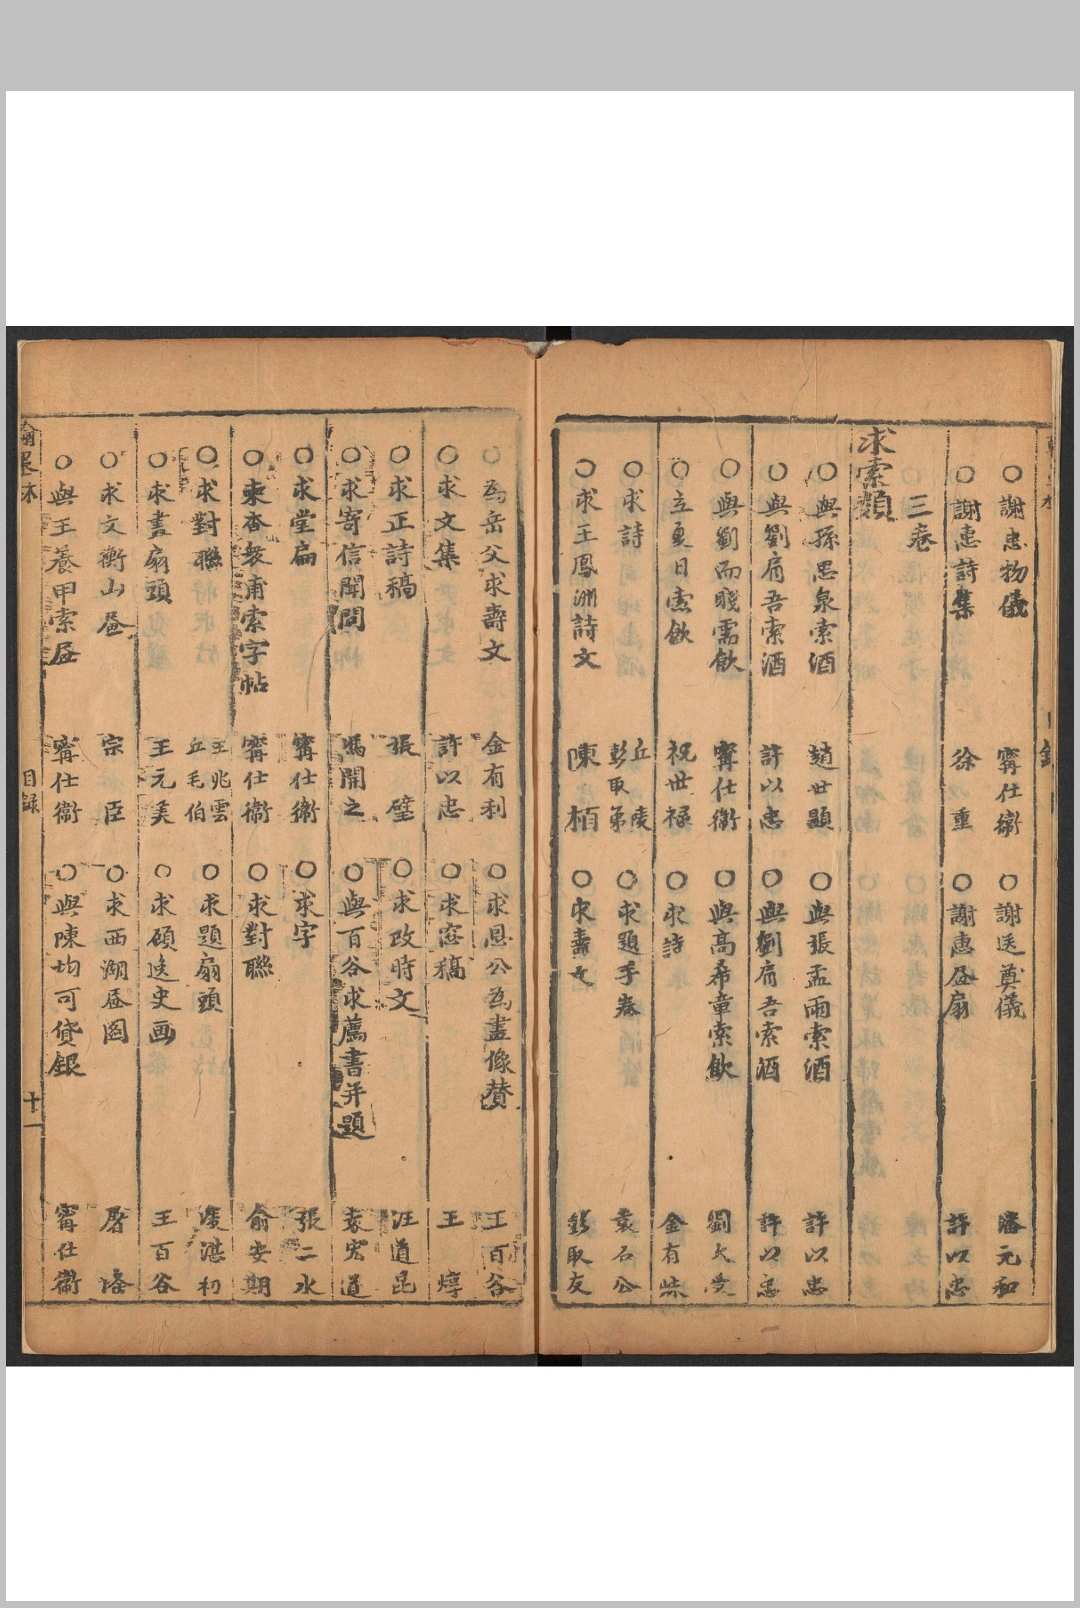 ○謝惠物儀 甯仕衡 ○謝送奠儀 潘元和
○謝惠詩集 徐 重 ○謝惠𦘕扇 許以忠
三卷
求索類
○與孫思泉索酒 趙世顯 ○與張孟雨索酒 許以忠
○與劉肩吾索酒 許以忠 ○與劉肩吾索酒 許以忠
○與劉而賤需飲 甯仕衡 ○與高希章索飲 劉大
○立夏日索飲 祝世祿 ○求詩 金有
○求詩 丘陵 彭取弟 ○求題手卷 袁石公
○求王鳳洲詩文 陳 栢 ○求壽文 彭取友
○為岳父求壽文 金有利 ○求恩公為畫像贊 王百谷
○求文集 許以忠 ○求窓稿 王 焞
○求正詩稿 張 璧 ○求政時文 汪道昆
○求寄信聞問 馮開之 ○與百谷求薦書并題 袁宏道
○求堂扁 甯仕衡 ○求字 張二水
○柬查袈甫索字帖 甯仕衡 ○求對聯 俞安期
○求對聯 王兆雲 丘毛伯 ○求題扇頭 凌湛初
○求畫扇頭 王元美 ○求碩逸史画 王百谷
○求文衡山𦘕 宗 臣 ○求西湖𦘕圖 屠 隆
○與王養甲索𦘕 甯仕衡 ○與陳均可貸銀 甯仕衡
目錄
十一